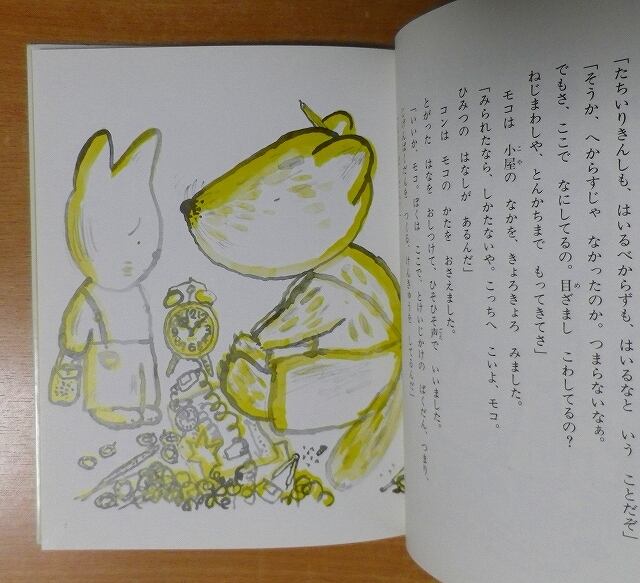 「たちいりきんしも、はいるべからずも、はいるなと いう ことだぞ」
「そうか、へからすじゃ なかったのか。つまらないなぁ。
でもさ、ここで なにしてるの。目ざまし こわしてるの?
ねじまわしや、とんかちまで もってきてさ」
モコは 小屋の なかを、きょろきょろ みました。
「みられたなら、しかたないや。こっちへ こいよ、モコ。
ひみつの はなしが あるんだ」
コンは モコの かたを おさえました。
とがった はなを おしつけて、ひそひそ声で いいました。
「いいか、モコ。ぼくは ここで、とけいじかけの ばくだん、つまり、
じげんばくだんを つくる、けんきゅうを してるんだ」